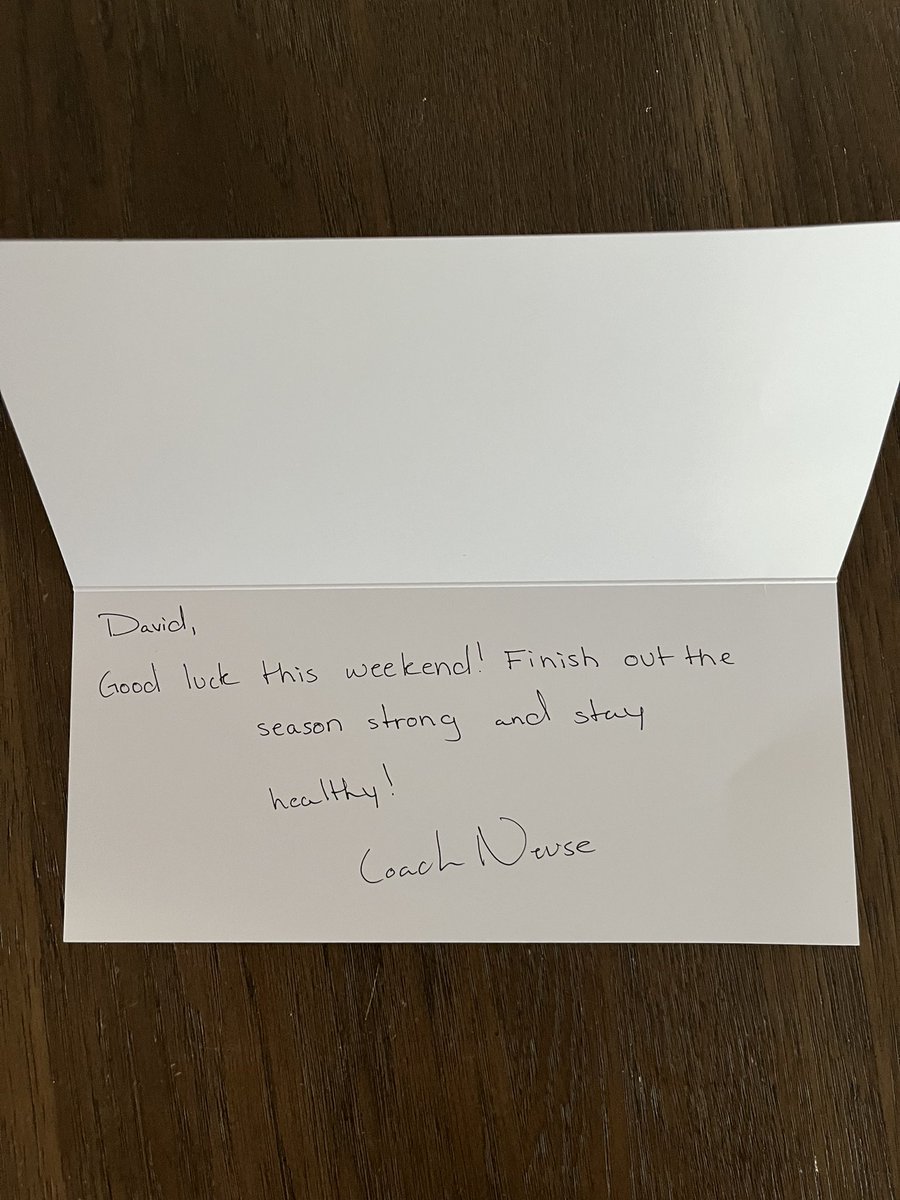 David,
Good luck this weekend! Finish out the
season strong and stay
healthy!
Coach Neuse